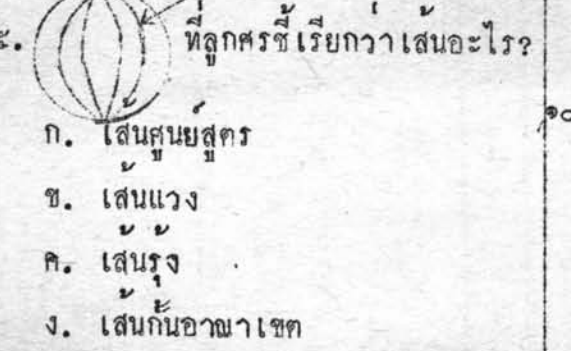 ๕. ที่ลูกศรชี้ เรียกว่า เส้นอะไร?
ก. เส้นศูนย์สูตร
๑๐
ข. เส้นแวง
ค. เส้นรุ้ง
ง. เส้นกั้นอาณาเขต